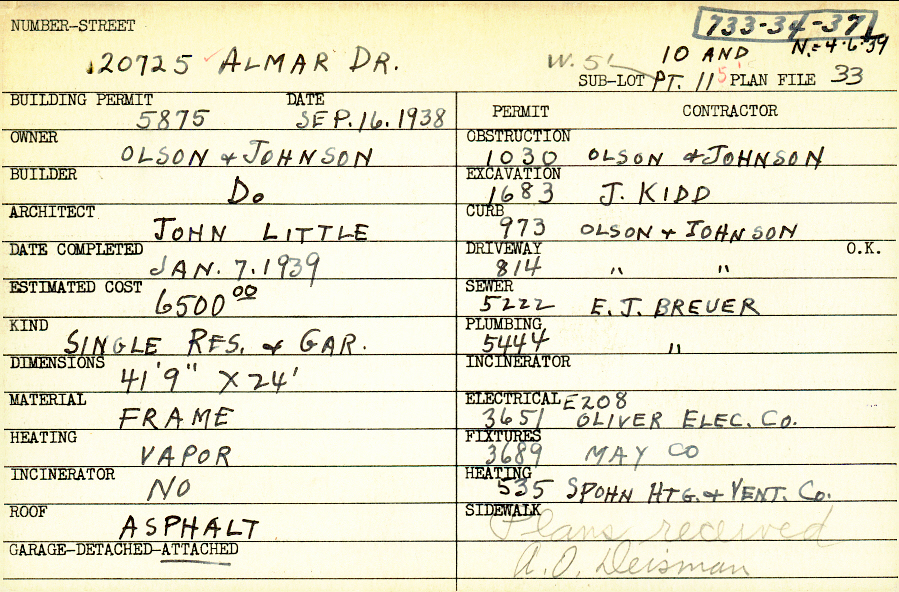 NUMBER-STREET 733-34-37
20725 ALMAR DR. W. 5' 10 AND N.=4-6-39
SUB-LOT PT. 11 5' PLAN FILE 33
BUILDING PERMIT DATE PERMIT CONTRACTOR
5875 SEP. 16. 1938
OWNER OBSTRUCTION
OLSON & JOHNSON 1030 OLSON & JOHNSON
BUILDER EXCAVATION
Do 1683 J. KIDD
ARCHITECT CURB
JOHN LITTLE 973 OLSON & JOHNSON
DATE COMPLETED DRIVEWAY O.K.
JAN. 7. 1939 814 " "
ESTIMATED COST SEWER
6500 00 5222 E. J. BREUER
KIND PLUMBING
SINGLE RES. & GAR. 5444 "
DIMENSIONS INCINERATOR
41'9" X 24'
MATERIAL ELECTRICAL E208
FRAME 3651 OLIVER ELEC. Co.
HEATING FIXTURES
VAPOR 3689 MAY CO
INCINERATOR HEATING
NO 535 SPOHN HTG. & VENT. Co.
ROOF SIDEWALK
ASPHALT Plans received
GARAGE-DETACHED-ATTACHED A. O. Deisman